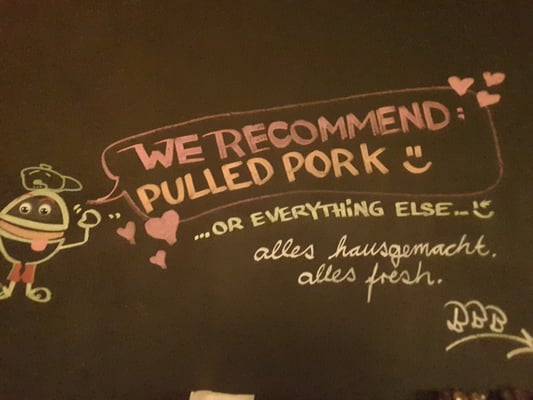 WE RECOMMEND:
PULLED PORK
...OR EVERYTHING ELSE...
alles hausgemacht.
alles fresh.
BBB